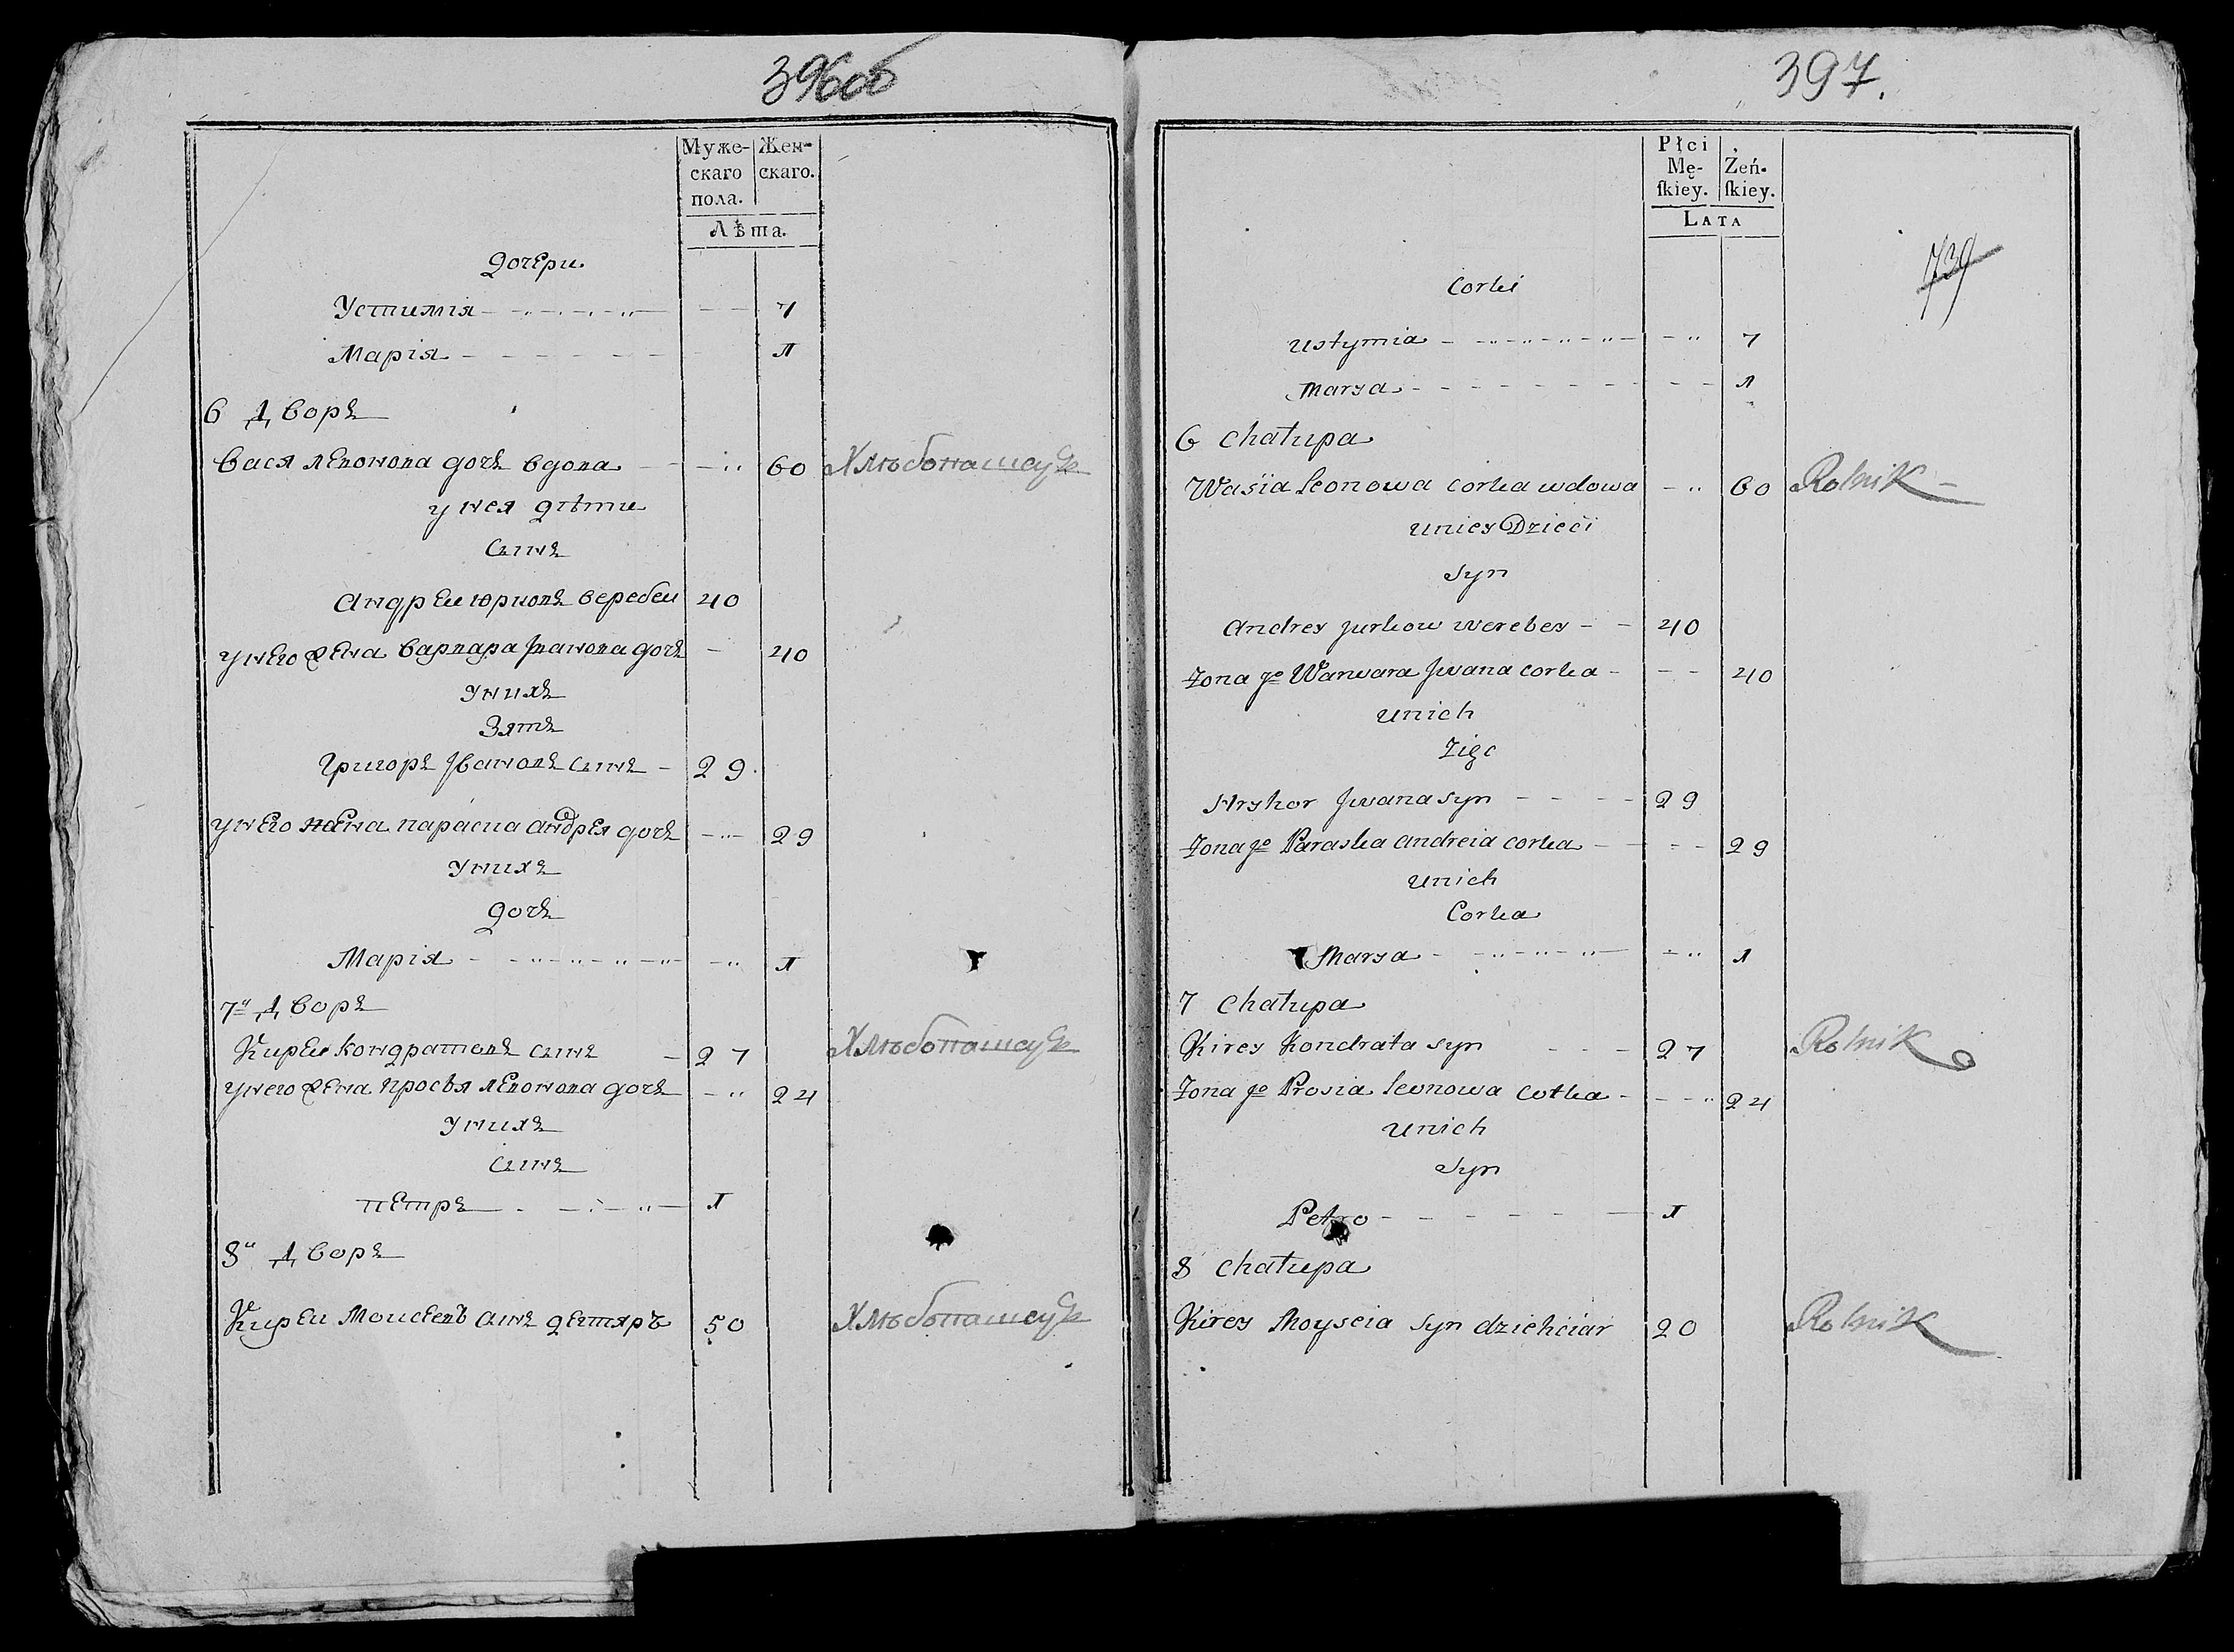 396об
Муже-скаго пола. Жен-скаго.
Лѣта.
дочери
Устимія 7
Марія 1
6 Дворъ
Вася леонова дочъ вдова 60 Хлѣбопашецъ
у нея дѣти
синъ
Андреи юрковъ веребеи 40
у него жена варвара Іванова дочъ 40
У нихъ
Зятъ
Григоръ Івановъ синъ 29
у него жена параска андрея дочъ 29
У нихъ
дочъ
Марія 1
7й Дворъ
Киреи кондратовъ синъ 27 Хлѣбопашецъ
у него жена просья леонова дочъ 24
У нихъ
синъ
петръ 1
8й Дворъ
Киреи Моисеевъ синъ дехтяръ 50 Хлѣбопашецъ
397.
Płci Mę-ſkiey. Żeń-ſkiey.
LATA
739
Corki
ustymia 7
Marya 1
6 Chałupa
Wasia Leonowa corka wdowa 60 Rolnik
uniey Dzieci
syn
Andrey Jurkow werebey 40
Żona jo Warwara Jwana corka 40
unich
Zięc
Hryhor Jwana syn 29
Żona jo Paraska andreia corka 29
unich
Corka
Marya 1
7 Chałupa
Kirey Kondrata syn 27 Rolnik
Żona jo Prosia Leonowa cotka 24
unich
syn
Petro 1
8 Chałupa
Kirey Moyseia syn dziehciar 20 Rolnik